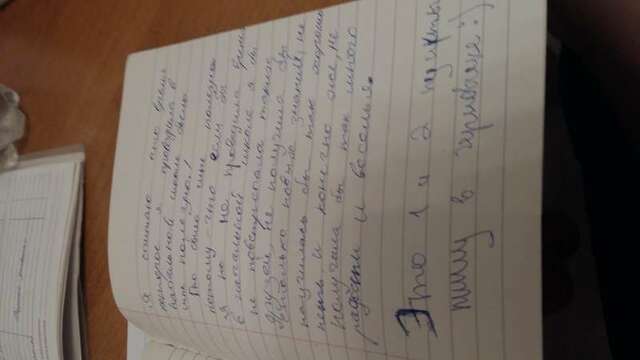 Я считаю что время
которое я проводила в
начальной школе было
мне полезно!
Оно было мне полезно
потому-что если бы
я не проводила время
в начальной школе я бы
не повстречала таких
друзей, не получила бы
столько новых знаний, не
научилась бы так хорошо
петь и конечно же, не
получила бы так много
радости и веселья.
Это 1 и 2 пункты
пишу в черновике :)